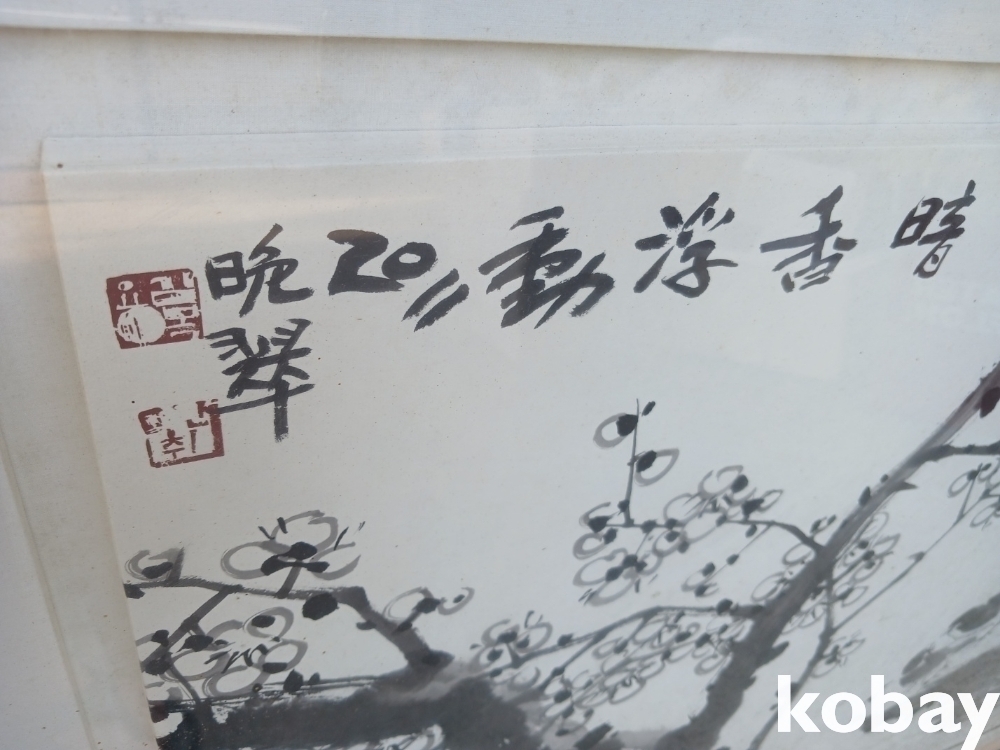 晴香浮動
2011
晩翠
kobay